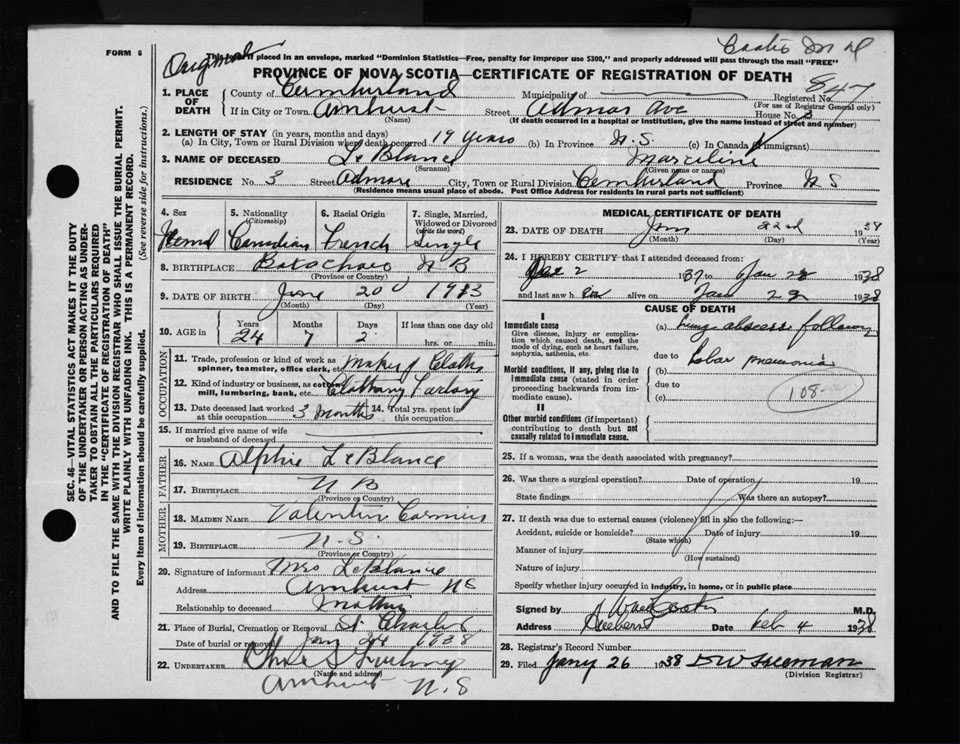 FORM 6
Original
This form if placed in an envelope, marked "Dominion Statistics—Free, penalty for improper use $300," and properly addressed will pass through the mail "FREE"
PROVINCE OF NOVA SCOTIA—CERTIFICATE OF REGISTRATION OF DEATH
847
1. PLACE OF DEATH
County of Cumberland Municipality of Registered No.
(For use of Registrar General only)
If in City or Town Amherst Street House No. 3
(Name) (If death occurred in a hospital or Institution, give the name instead of street and number)
2. LENGTH OF STAY (in years, months and days)
(a) In City, Town or Rural Division where death occurred 19 years (b) In Province N.S. (c) In Canada if immigrant)
3. NAME OF DECEASED LeBlanc Marceline
(Surname) (Given name or names)
RESIDENCE No. 3 Street City, Town or Rural Division Cumberland Province NS
(Residence means usual place of abode. Post Office Address for residents in rural parts not sufficient)
4. Sex 5. Nationality (Citizenship) 6. Racial Origin 7. Single, Married, Widowed or Divorced (write the word)
Canadian French Single
8. BIRTHPLACE N B
(Province or Country)
9. DATE OF BIRTH June 20 1913
(Month) (Day) (Year)
10. AGE in Years Months Days If less than one day old
24 7 2 hrs. or min.
OCCUPATION
11. Trade, profession or kind of work as spinner, teamster, office clerk, etc.
12. Kind of industry or business, as cotton mill, lumbering, bank, etc.
13. Date deceased last worked at this occupation 3 months 14. Total yrs. spent in this occupation
15. If married give name of wife or husband of deceased
FATHER
16. NAME LeBlance
17. BIRTHPLACE N B
(Province or Country)
MOTHER
18. MAIDEN NAME
19. BIRTHPLACE N.S.
(Province or Country)
20. Signature of informant Mrs LeBlance
Address Amherst NS
Relationship to deceased Mother
21. Place of Burial, Cremation or Removal St. Charles
Date of burial or removal Jan 24 1938
22. UNDERTAKER
(Name and address)
Amherst N.S
MEDICAL CERTIFICATE OF DEATH
23. DATE OF DEATH Jan 22nd 1938
(Month) (Day) (Year)
24. I HEREBY CERTIFY that I attended deceased from:
Dec 2 1937 to Jan 22 1938
and last saw her alive on Jan 22 1938
CAUSE OF DEATH
I
Immediate cause
Give disease, injury or complication which caused death, not the mode of dying, such as heart failure, asphyxia, asthenia, etc.
(a) Lung abscess following
due to lobar pneumonia
Morbid conditions, if any, giving rise to immediate cause (stated in order proceeding backwards from immediate cause).
(b)
due to
(c)
108
II
Other morbid conditions (if important) contributing to death but not causally related to immediate cause.
25. If a woman, was the death associated with pregnancy?
26. Was there a surgical operation? Date of operation 19
State findings Was there an autopsy?
27. If death was due to external causes (violence) fill in also the following:—
Accident, suicide or homicide? Date of injury 19
(State which)
Manner of injury
(How sustained)
Nature of injury
Specify whether injury occurred in industry, in home, or in public place
Signed by M.D.
Address Date Feb 4 1938
28. Registrar's Record Number
29. Filed Jany 26 1938
(Division Registrar)
SEC. 46—VITAL STATISTICS ACT MAKES IT THE DUTY
OF THE UNDERTAKER OR PERSON ACTING AS UNDERTAKER
TO OBTAIN ALL THE PARTICULARS REQUIRED
IN THE "CERTIFICATE OF REGISTRATION OF DEATH"
AND TO FILE THE SAME WITH THE DIVISION REGISTRAR WHO SHALL ISSUE THE BURIAL PERMIT.
WRITE PLAINLY WITH UNFADING INK. THIS IS A PERMANENT RECORD.
Every item of information should be carefully supplied. (See reverse side for instructions.)